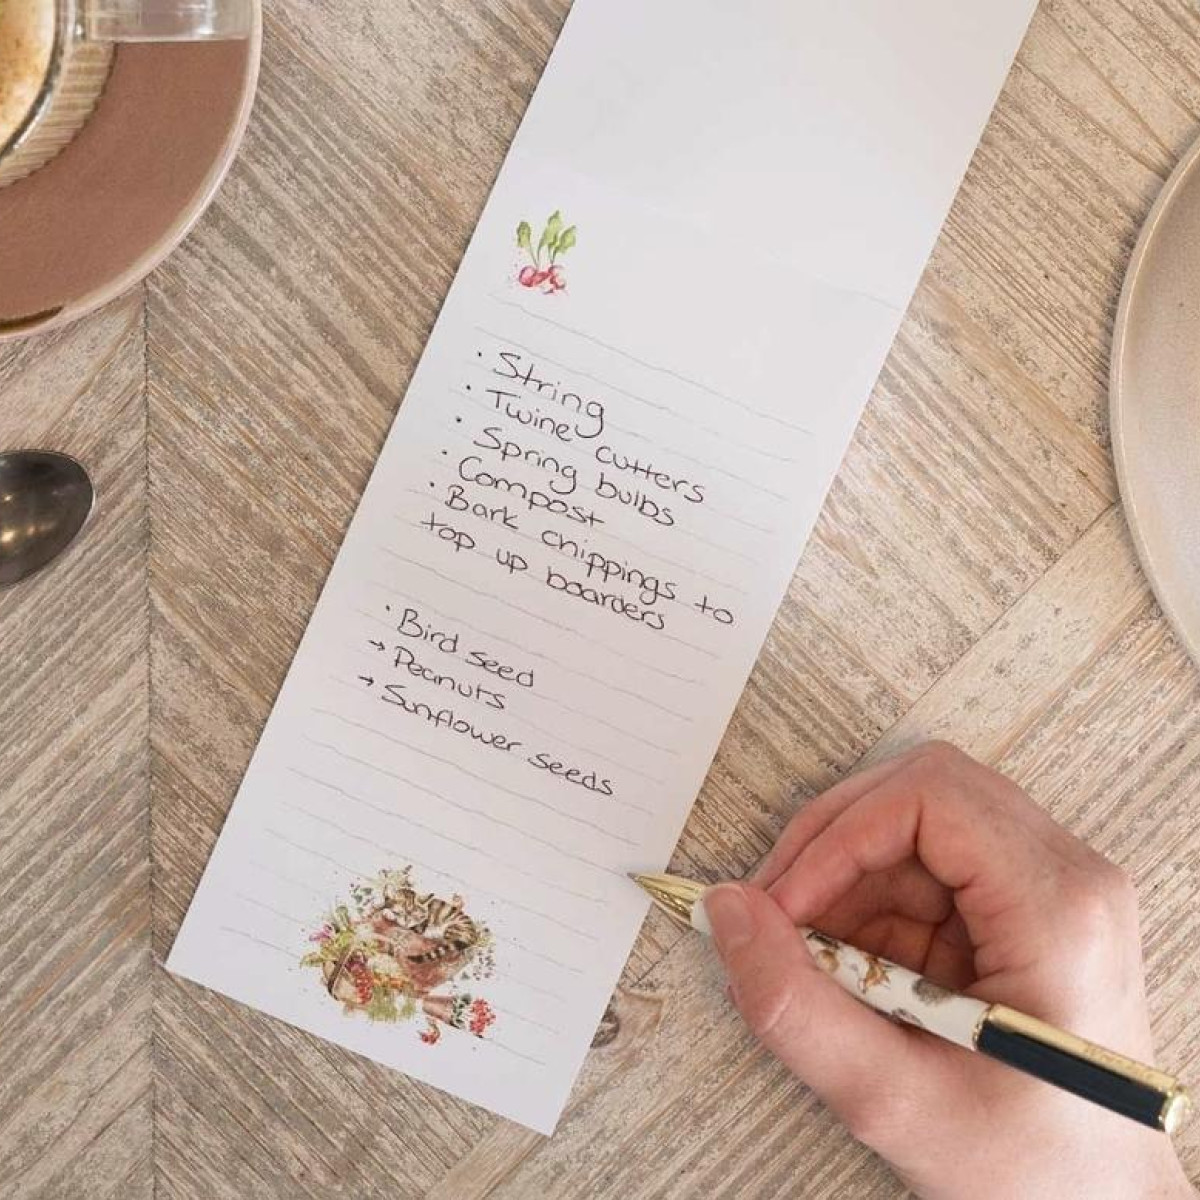 · String
· Twine cutters
· Spring bulbs
· Compost
· Bark chippings to
top up boarders
· Bird seed
→ Peanuts
→ Sunflower seeds